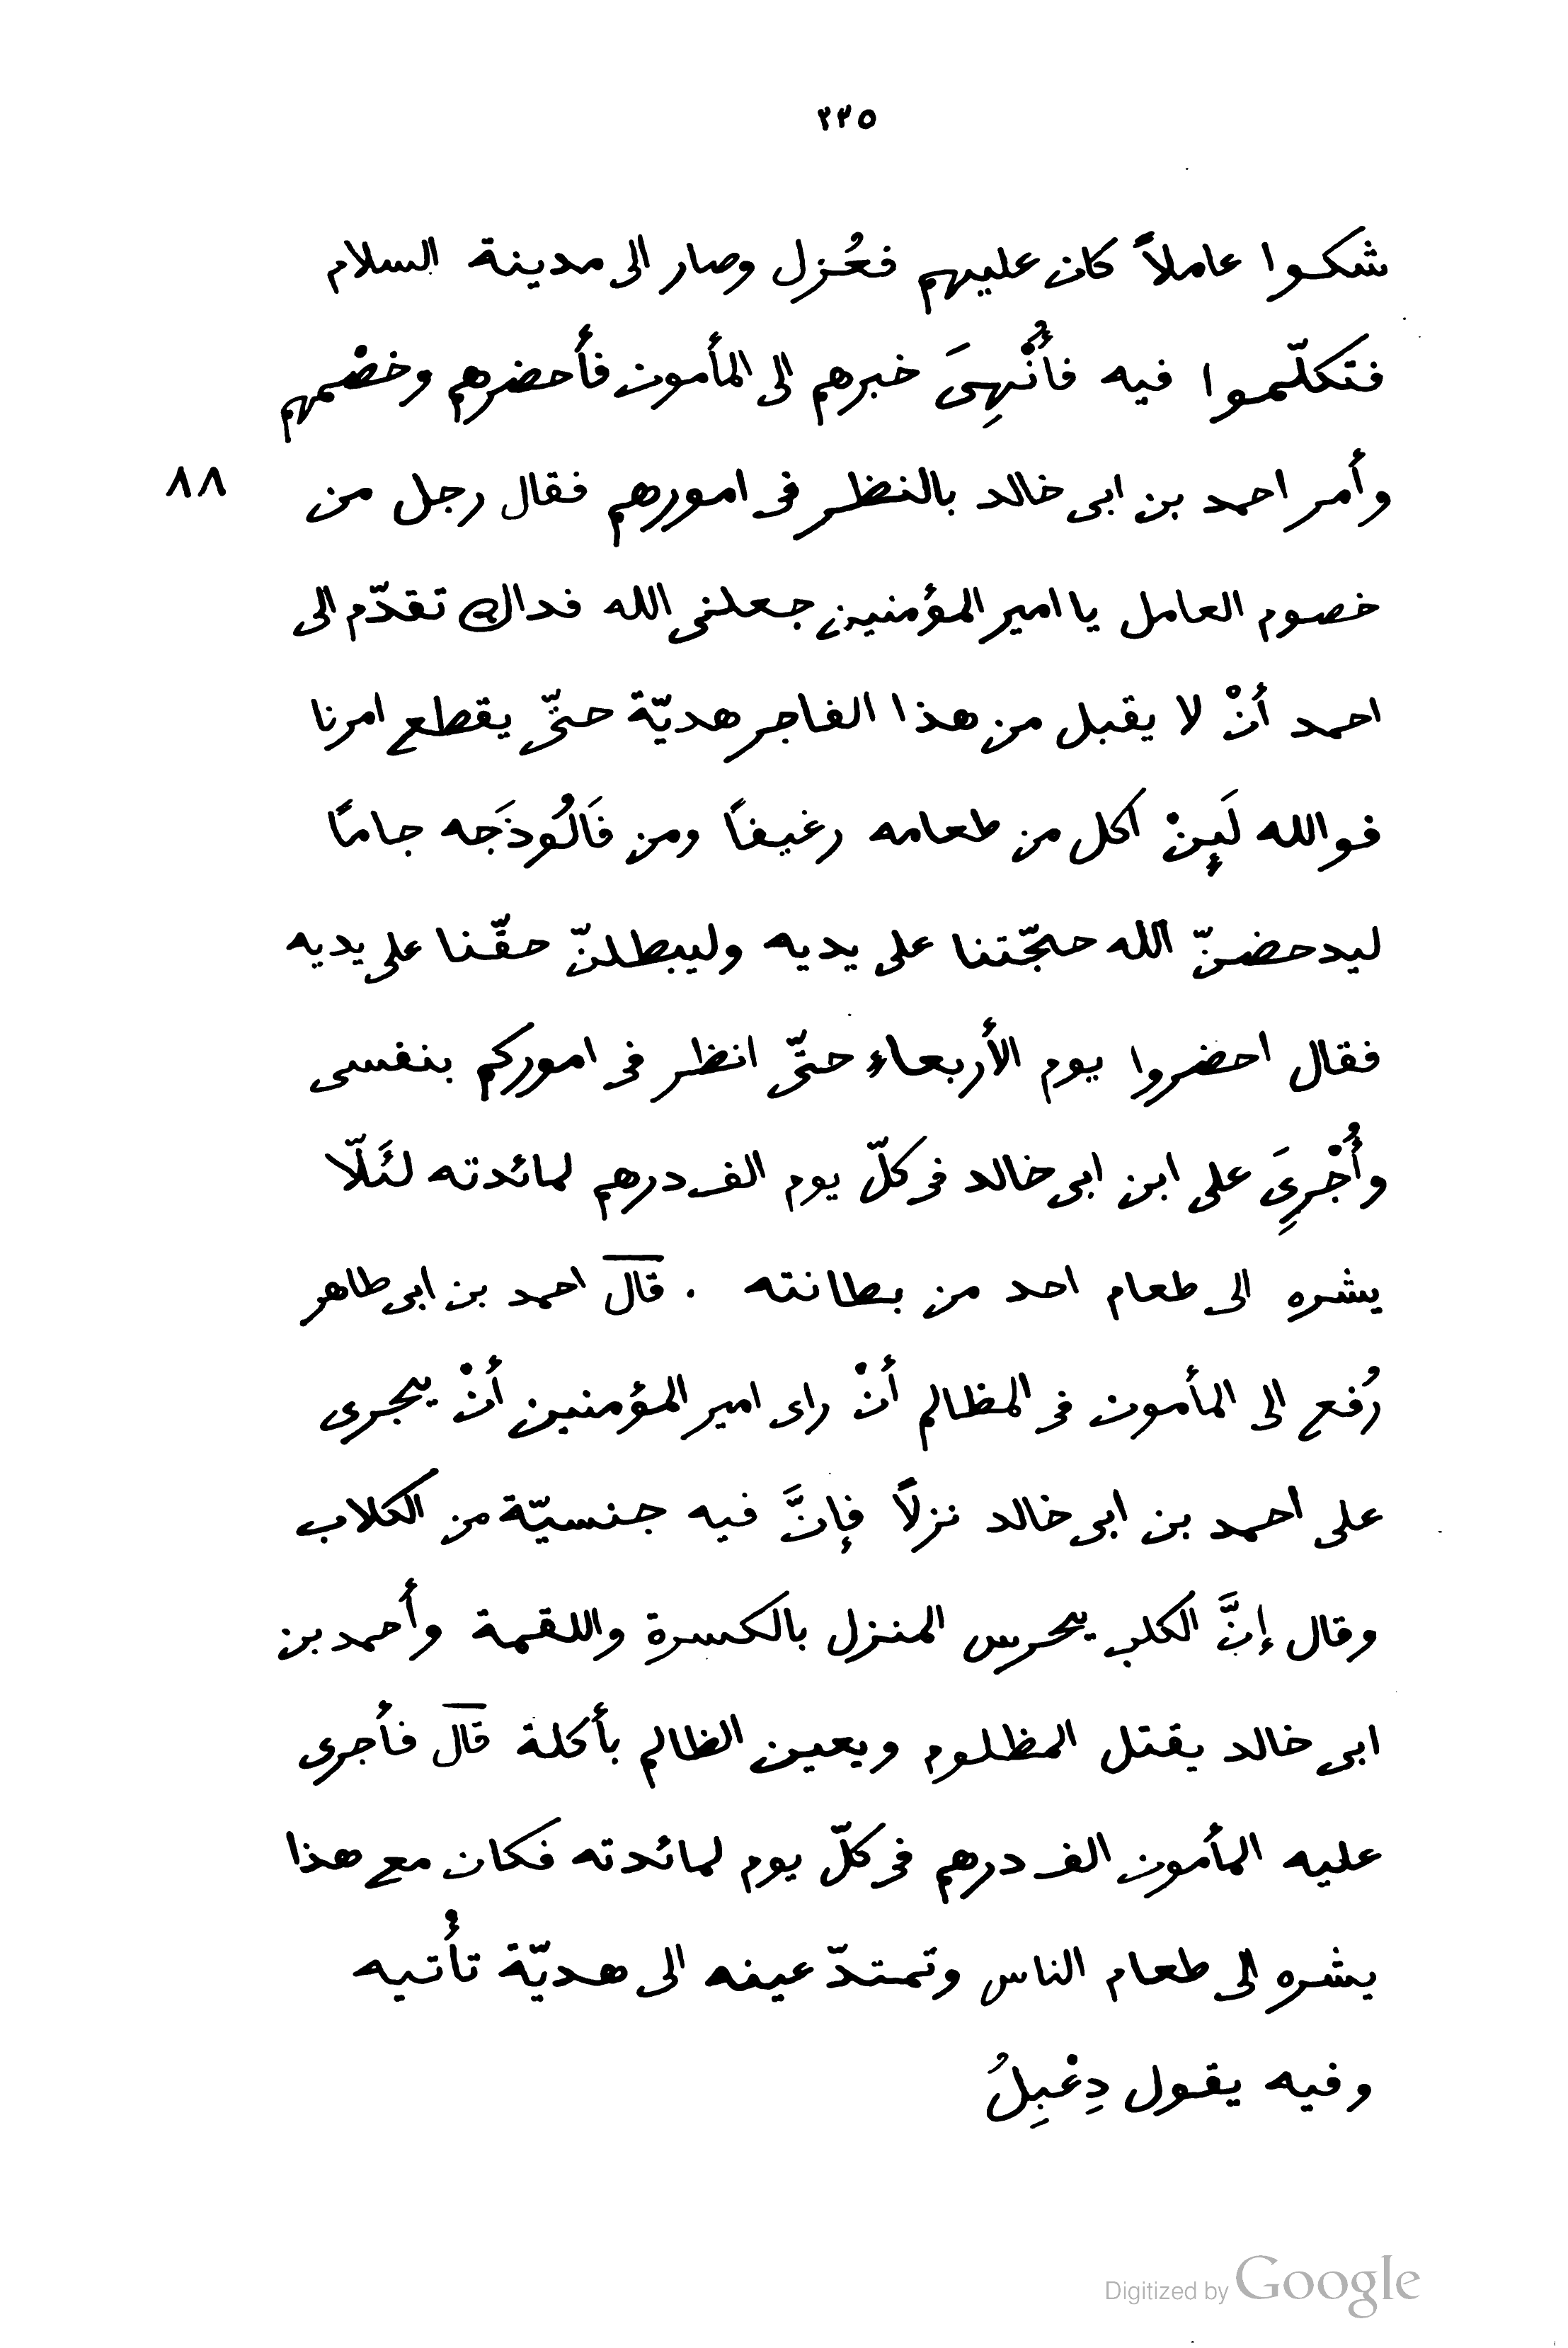 ٢٢٥
شكوا عاملاً كان عليهم فعُزل وصار الى مدينة السلام
فتكلّموا فيه فأُنْهِىَ خبرهم الى المأمون فأحضرهم وخصْمهم
وأمر احمد بن ابى خالد بالنظر فى امورهم فقال رجل من ٨٨
خصوم العامل يا امير المؤمنين جعلنى الله فداك تقدّم الى
احمد أنْ لا يقبل من هذا الفاجر هديّة حتّى يقطع امرنا
فوالله لَئِنْ اكل من طعامه رغيفاً ومن فَالُوذَجه جاماً
ليدحضنّ الله حجّتنا على يديه وليبطلنّ حقّنا على يديه
فقال احضروا يوم الأربعاء حتّى انظر فى اموركم بنفسى
وأُجْرِىَ على ابن ابى خالد فى كلّ يوم الف درهم لمائدته لئَلّا
يشره الى طعام احد من بطانته . قال احمد بن ابى طاهر
رُفع الى المأمون فى المظالم أنْ راى امير المؤمنين أنْ يجرى
على احمد بن ابى خالد نزلاً فإنَّ فيه جنسيّة من الكلاب
وقال إنَّ الكلب يحرس المنزل بالكسرة واللقمة وأحمد بن
ابى خالد يقتل المظلوم ويعين الظالم بأكلة قال فأجرى
عليه المأمون الف درهم فى كلّ يوم لمائدته فكان مع هذا
يشره الى طعام الناس وتمتدّ عينه الى هديّة تأْتيه
وفيه يقول دِعْبِلُ
Digitized by Google